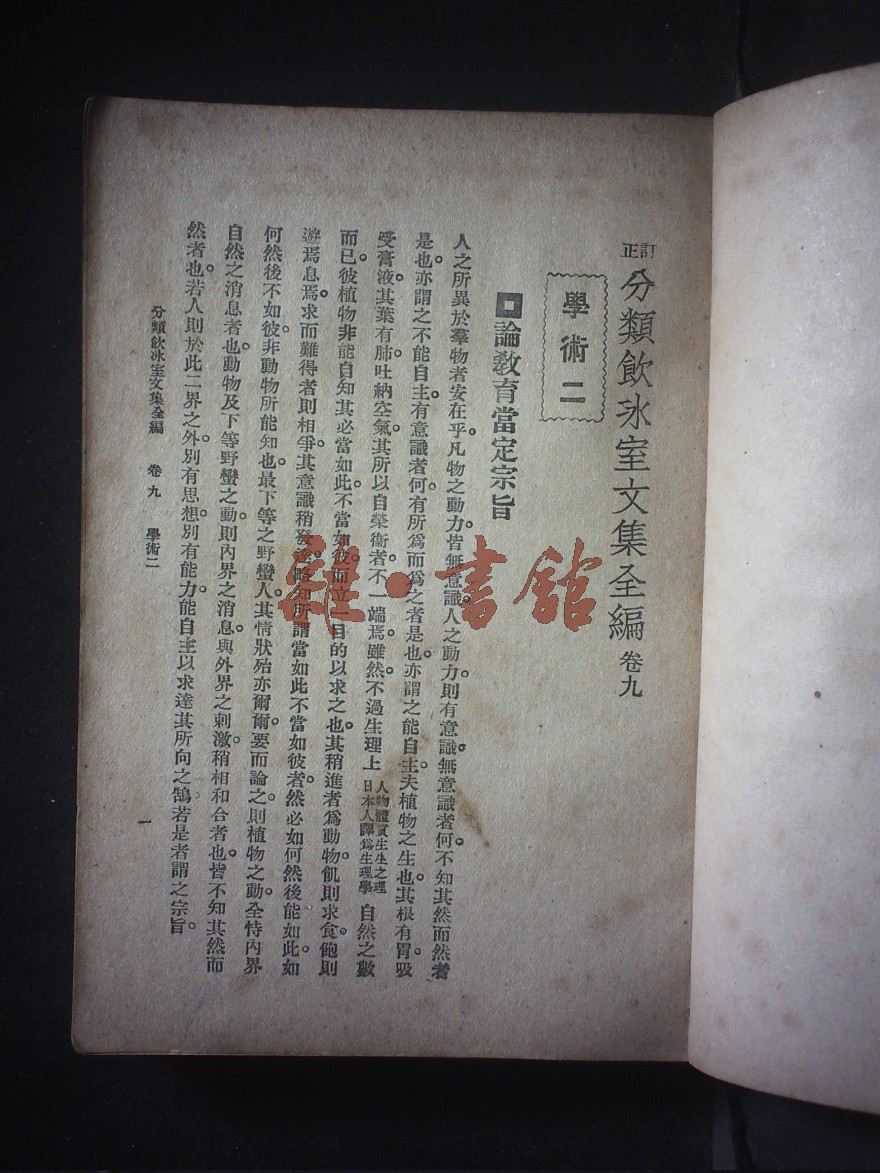 訂正分類飲冰室文集全編卷九
學術二
論教育當定宗旨
人之所異於羣物者安在乎凡物之動力皆無意識人之動力則有意識無意識者何不知其然而然者
是也亦謂之不能自主有意識者何有所爲而爲之者是也亦謂之能自主夫植物之生也其根有胃吸
受膏液其葉有肺吐納空氣其所以自榮衞者不一端焉雖然不過生理上人物體質生生之理日本人譯爲生理學自然之數
而已彼植物非能自知其必當如此不當如彼而立一目的以求之也其稍進者爲動物飢則求食飽則
遊焉息焉求而難得者則相爭其意識稍發達略知所謂當如此不當如彼者然必如何然後能如此如
何然後不如彼非動物所能知也最下等之野蠻人其情狀殆亦爾爾要而論之則植物之動全恃內界
自然之消息者也動物及下等野蠻之動則內界之消息與外界之刺激稍相和合者也皆不知其然而
然者也若人則於此二界之外別有思想別有能力能自主以求達其所向之鵠若是者謂之宗旨
分類飲冰室文集全編 卷九 學術二 一
雜·書館